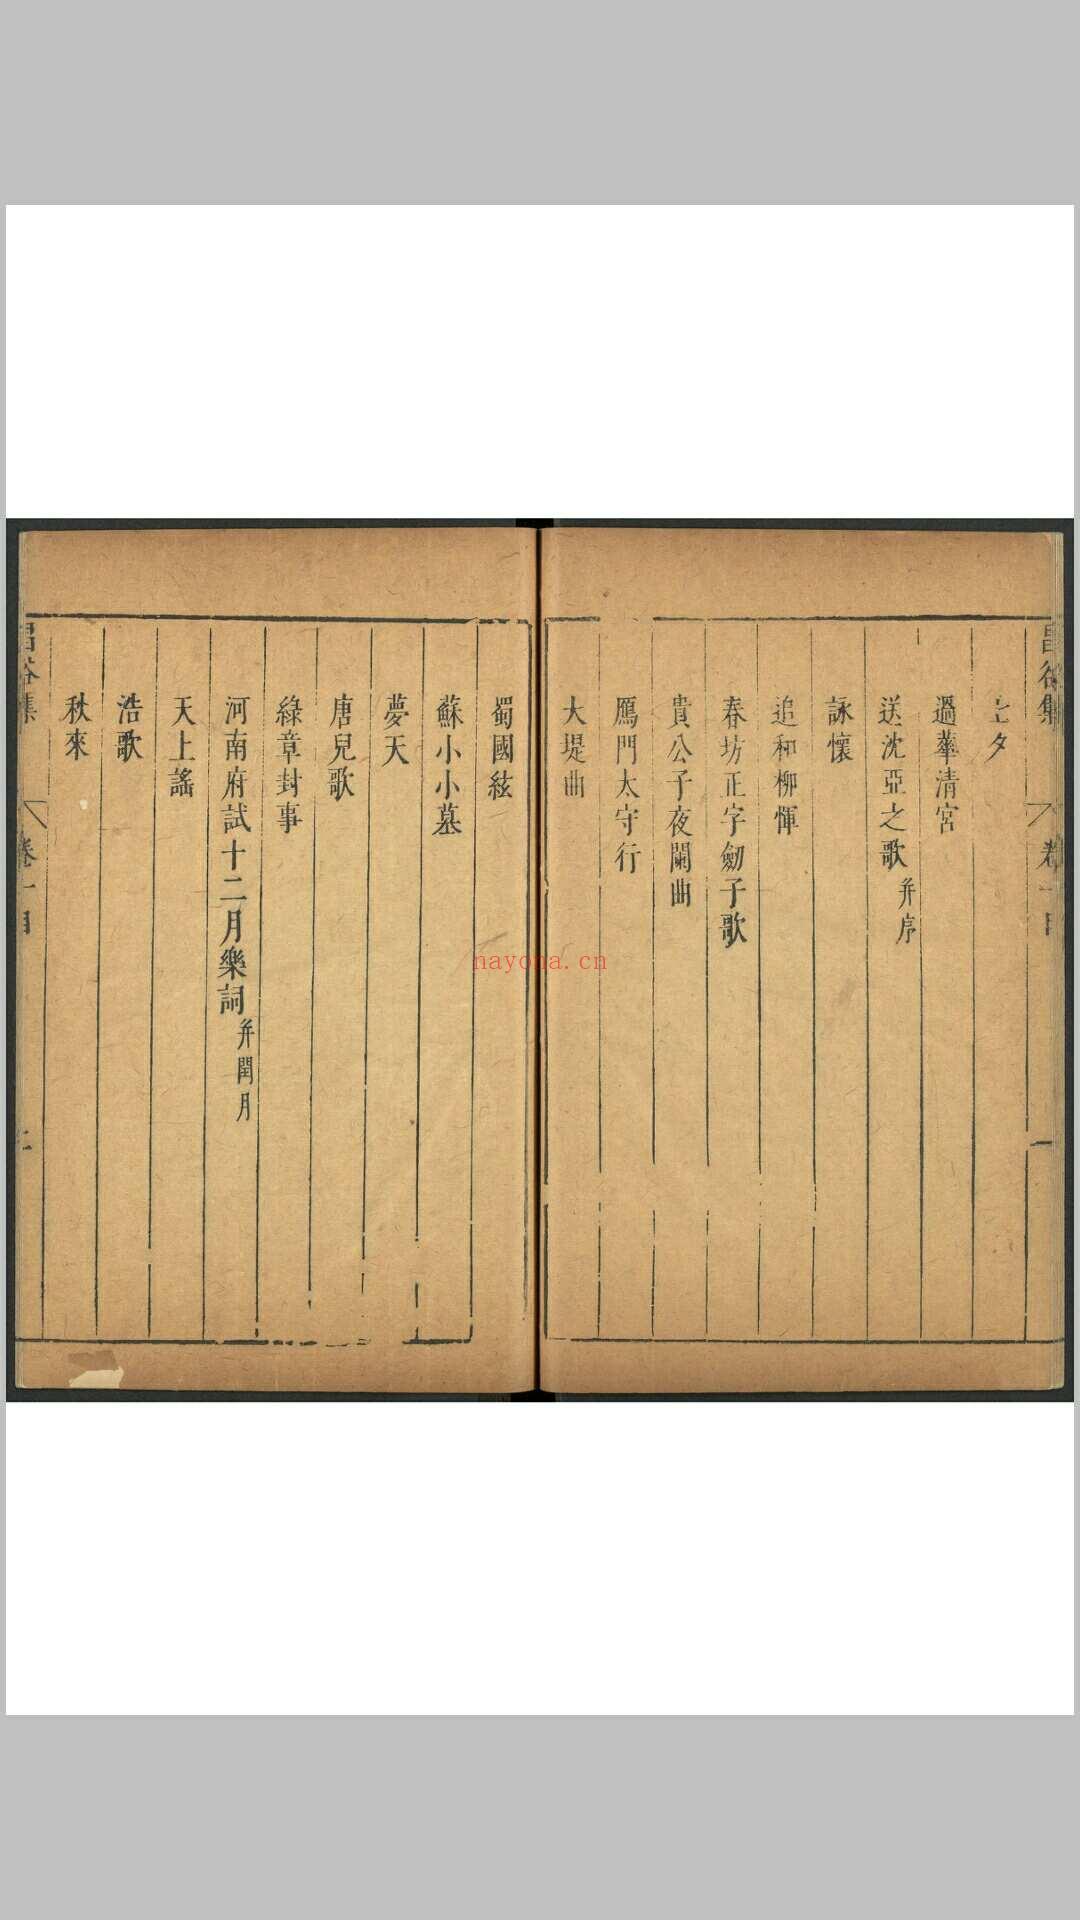 昌谷集 卷一目
七夕
過華清宮
送沈亞之歌 并序
詠懷
追和柳惲
春坊正字劒子歌
貴公子夜闌曲
鴈門太守行
大堤曲
蜀國絃
蘇小小墓
夢天
唐兒歌
綠章封事
河南府試十二月樂詞 并閏月
天上謠
浩歌
秋來
昌谷集 卷一目
nayona.cn